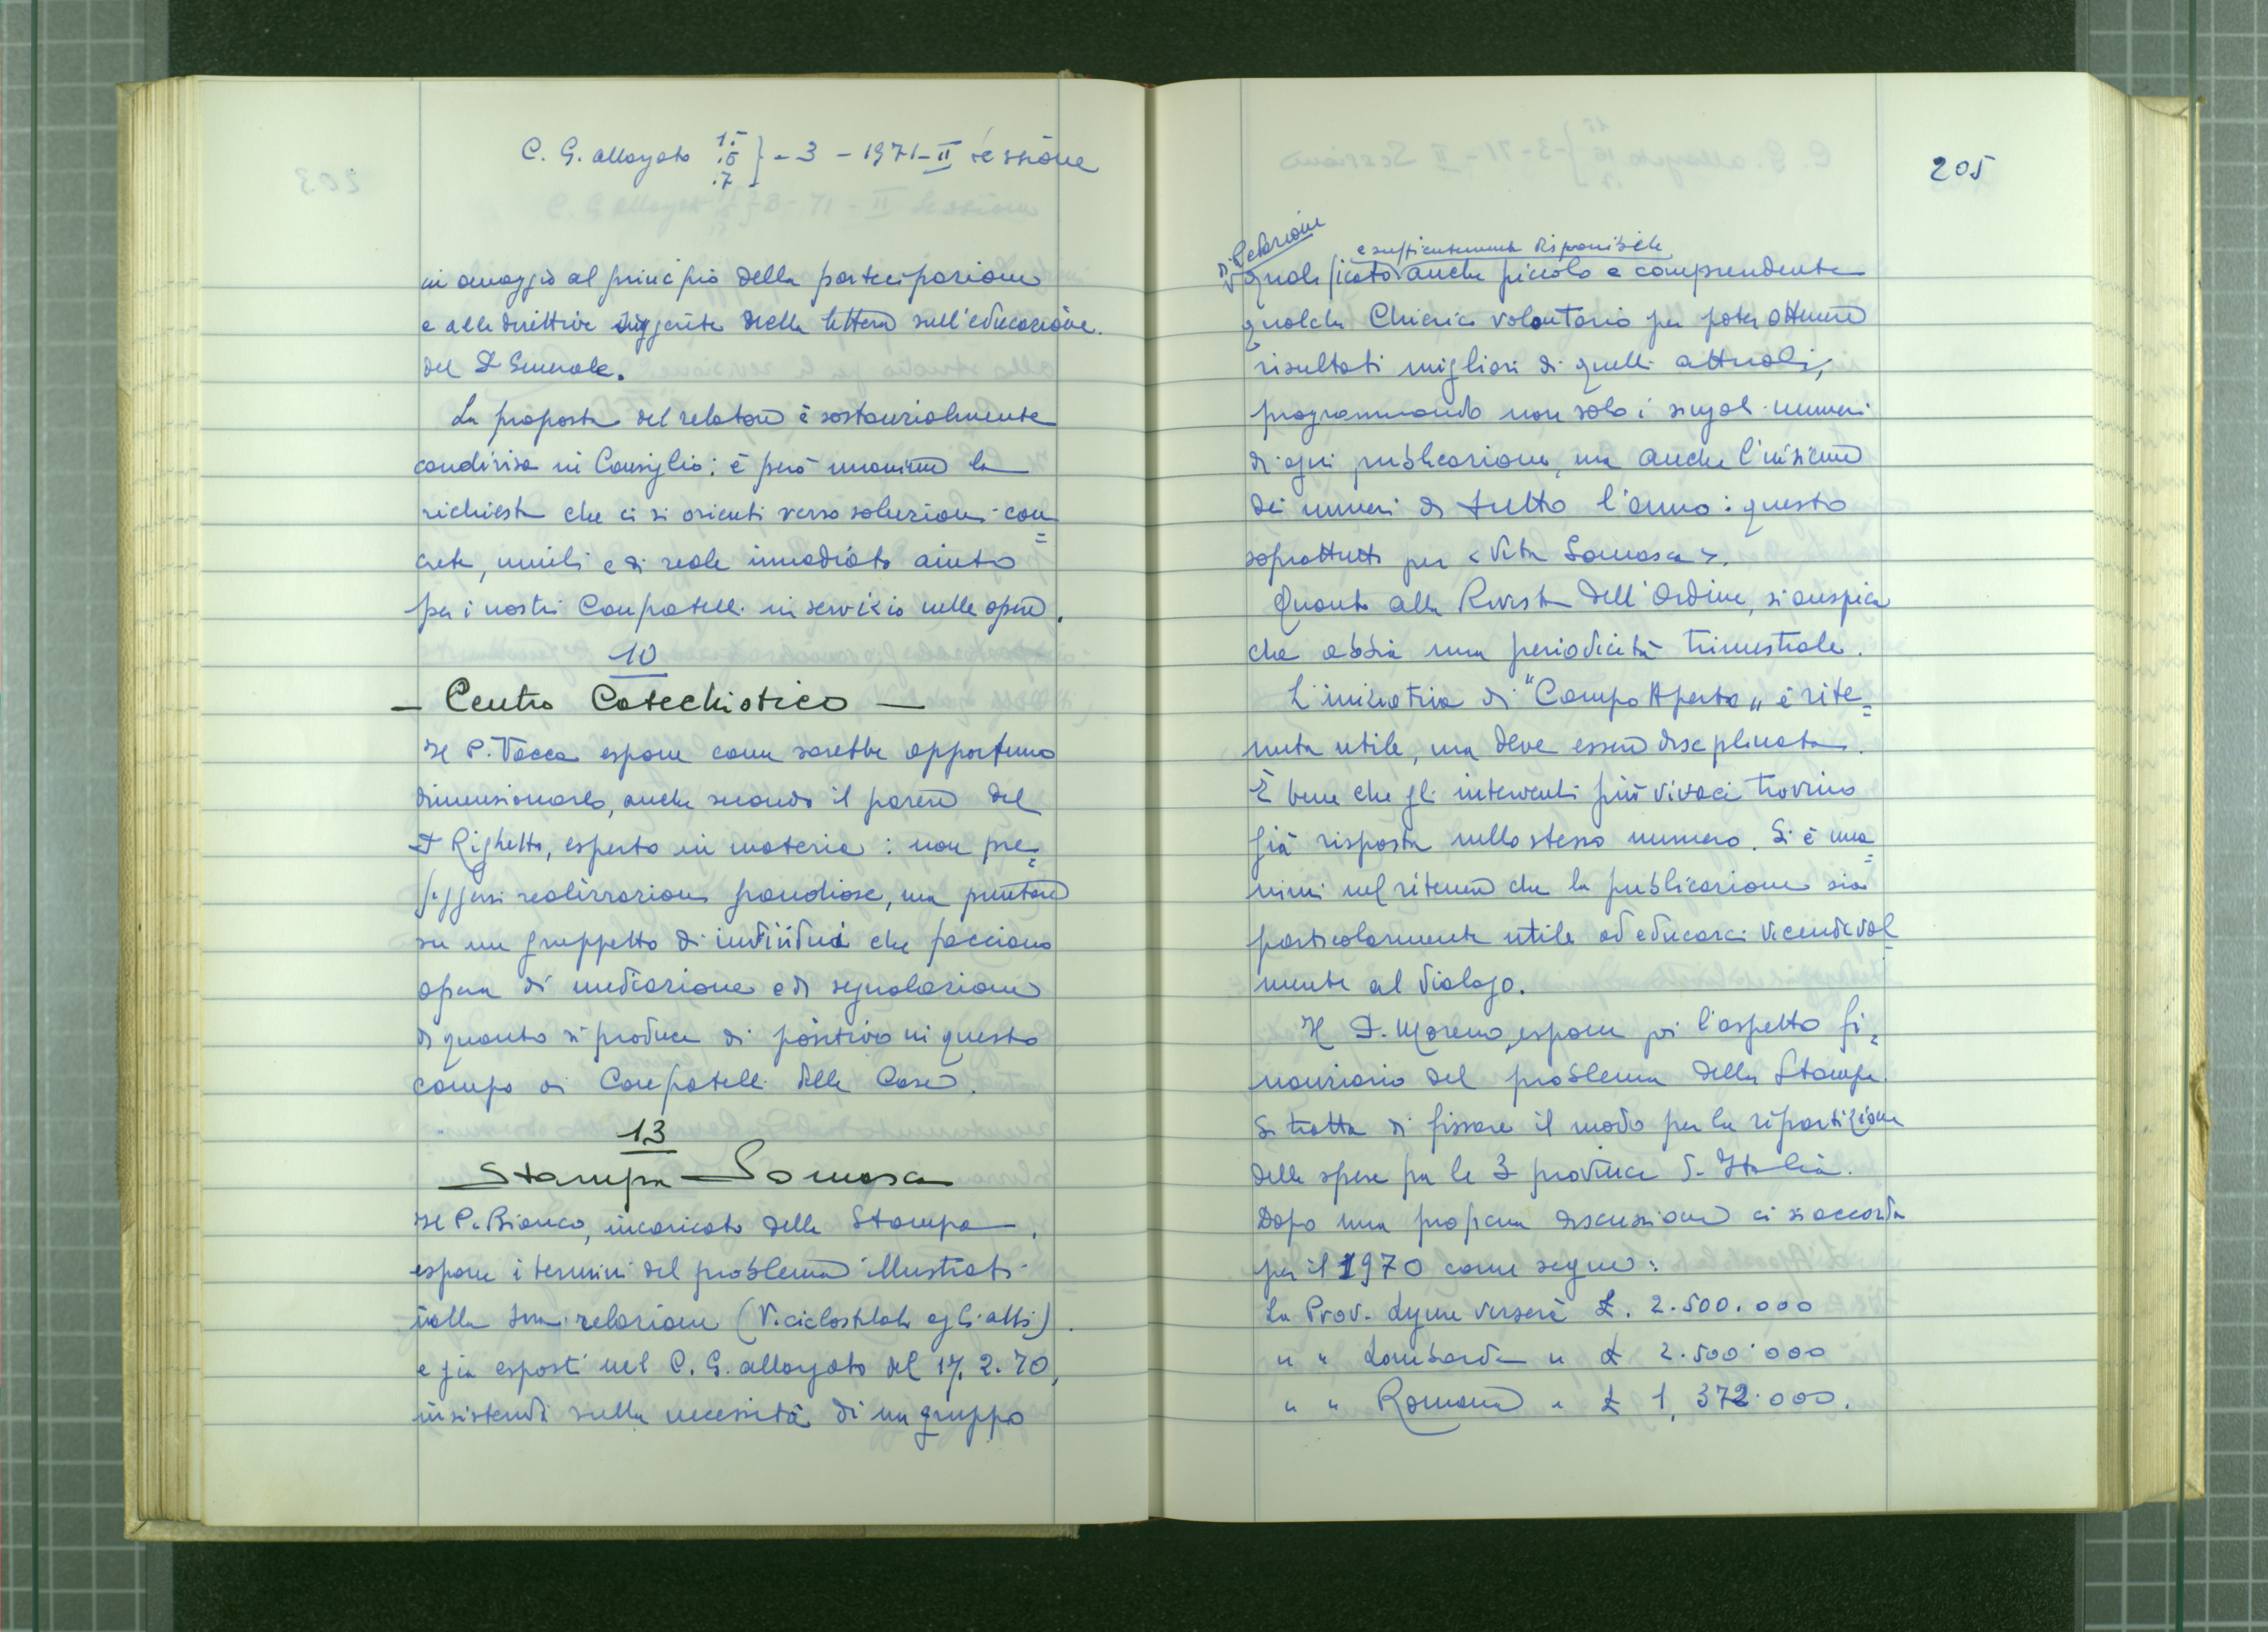 C. G. allargato 15 16 17 } - 3 - 1971 - II sessione
in omaggio al principio della partecipazione
e alle direttive suggerite della lettera sull'educazione
del P. Generale.
La proposta del relatore è sostanzialmente
condivisa in Consiglio; è però unanime la
richiesta che ci si orienti verso soluzioni con=
crete, umili e di reale immediato aiuto
per i nostri Confratelli in servizio nelle opere.
10
- Centro Catechistico -
Il P. Vacca espone come sarebbe opportuno
dimensionarlo, anche secondo il parere del
P. Righetto, esperto in materia: non pre=
figgersi realizzazioni grandiose, ma puntare
su un gruppetto di individui che facciano
opera di mediazione e di segnalazione
di quanto si produce di positivo in questo
campo ai Confratelli delle Case.
13
Stampa - Somasca
Il P. Bianco, incaricato della Stampa,
espone i termini del problema illustrati
nella sua relazione (V. ciclostilato agli atti)
e già esposti nel C. G. allargato del 17. 2. 70,
insistendo sulla necessità di un gruppo
205
di Redazione
e sufficientemente disponibile
qualificato anche piccolo e comprendente
qualche Chierico volontario per poter ottenere
risultati migliori di quelli attuali,
programmando non solo i singoli numeri
di ogni pubblicazione, ma anche l'insieme
dei numeri di tutto l'anno: questo
soprattutto per < Vita Somasca >.
Quanto alla Rivista dell'Ordine, si auspica
che abbia una periodicità trimestrale.
L'iniziativa di "Campo Aperto„ è rite=
nuta utile, ma deve essere disciplinata.
È bene che gli interventi più vivaci trovino
già risposta nello stesso numero. Si è una=
nimi nel ritenere che la pubblicazione sia
particolarmente utile ad educarci vicendevol=
mente al dialogo.
Il P. Moreno, espone poi l'aspetto fi=
nanziario del problema della Stampa.
Si tratta di fissare il modo per la ripartizione
delle spese fra le 3 province d'Italia.
Dopo una discussione ci si accorda
per il 1970 come segue:
La Prov. Ligure verserà £. 2.500.000
" " Lombarda " £ 2.500.000
" " Romana " £ 1,372.000.